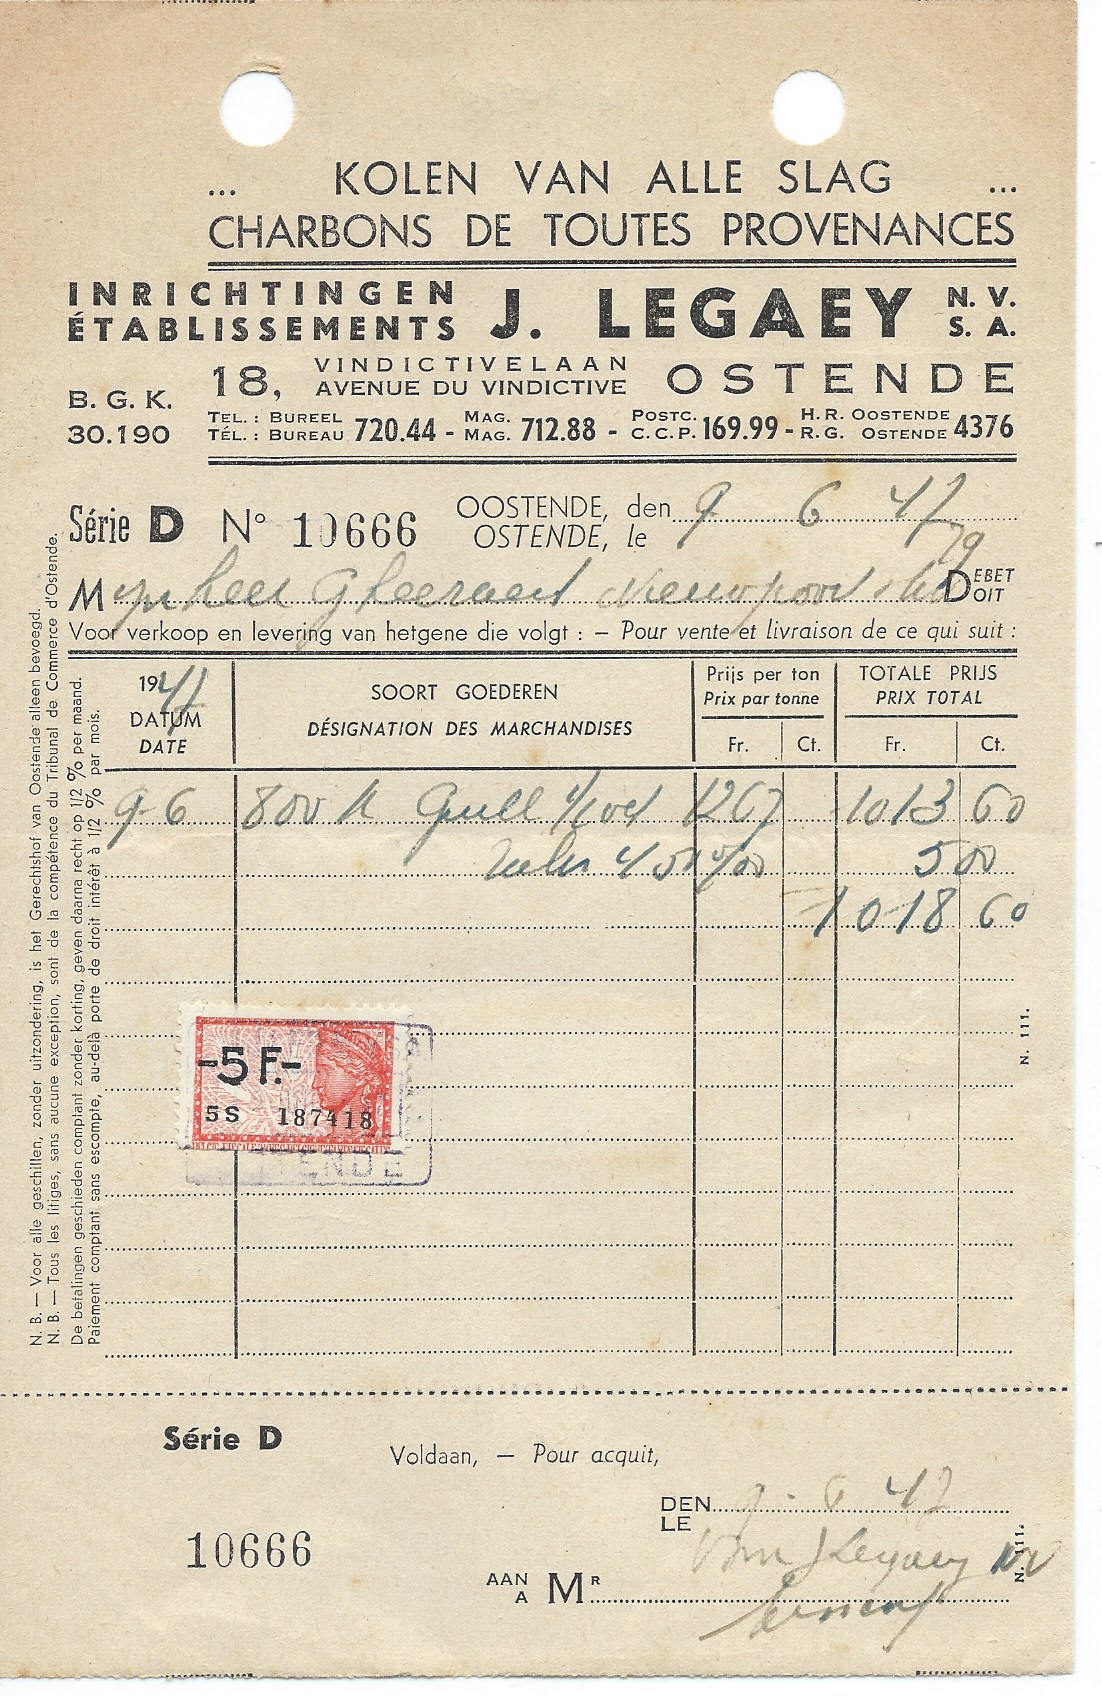 ... KOLEN VAN ALLE SLAG ...
CHARBONS DE TOUTES PROVENANCES
INRICHTINGEN
ÉTABLISSEMENTS J. LEGAEY N. V.
S. A.
B. G. K.
30.190
18, VINDICTIVELAAN
AVENUE DU VINDICTIVE OSTENDE
TEL. : BUREEL
TÉL. : BUREAU 720.44 - MAG.
MAG. 712.88 - POSTC.
C.C.P. 169.99 - H.R. OOSTENDE
R.G. OSTENDE 4376
Série D N° 10666
OOSTENDE, den 9 6 47
OSTENDE, le
79
Mijnheer Gheeraert Nieuwpoort DEBET
DOIT
Voor verkoop en levering van hetgene die volgt : – Pour vente et livraison de ce qui suit :
1947
DATUM
DATE
SOORT GOEDEREN
DÉSIGNATION DES MARCHANDISES
Prijs per ton
Prix par tonne
Fr. Ct.
TOTALE PRIJS
PRIX TOTAL
Fr. Ct.
9-6 800 k 1267 1013 60
5 00
1018 60
-5 F.-
5S 187418
TENDE
N. B. — Voor alle geschillen, zonder uitzondering, is het Gerechtshof van Oostende alleen bevoegd.
N. B. — Tous les litiges, sans aucune exception, sont de la compétence du Tribunal de Commerce d'Ostende.
De betalingen geschieden comptant zonder korting, geven daarna recht op 1/2 % per maand.
Paiement comptant, sans escompte, au-delà porte de droit intérêt à 1/2 % par mois.
N. 111.
Série D
Voldaan, — Pour acquit,
10666
DEN 9 - 6 47
LE
J Legaey NV
AAN
A MR
N. 111.